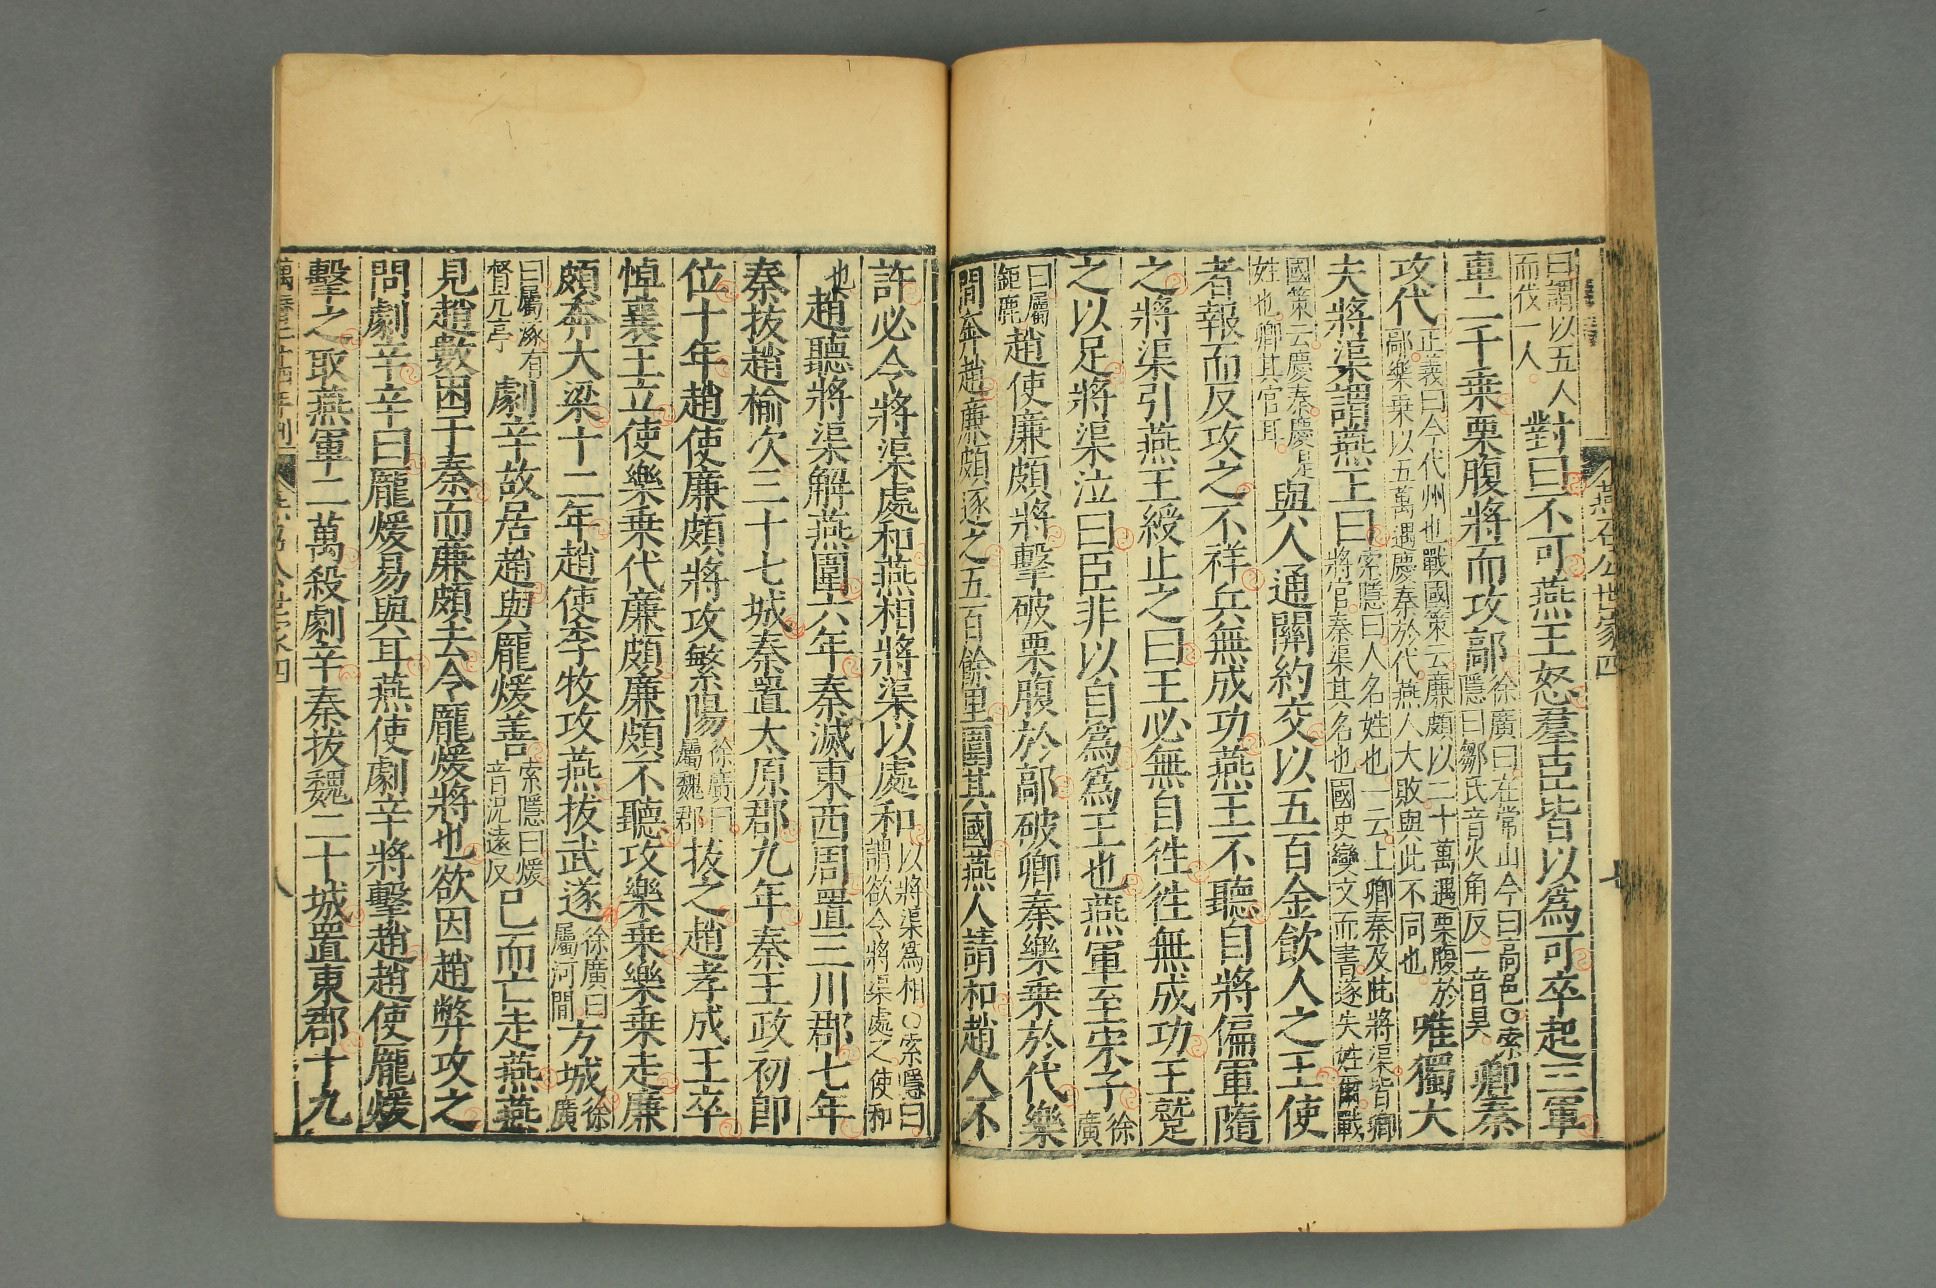 燕召公世家四
七
曰謂以五人
而伐一人
對曰不可燕王怒羣臣皆以爲可卒起三軍
車二千乗栗腹將而攻鄗
徐廣曰在常山今曰高邑○索
隱曰鄒氏音火角反一音昊
卿秦
攻代
正義曰今代州也戰國策云廉頗以二十萬遇栗腹於
鄗樂乗以五萬遇慶秦於代燕人大敗與此不同也
唯獨大
夫將渠謂燕王曰
索隱曰人名姓也一云上卿秦及此將渠皆卿
將官秦渠其名也國史變文而書遂失姓爾戰
國策云慶秦慶是
姓也卿其官耳
與人通關約交以五百金飲人之王使
者報而反攻之不祥兵無成功燕王不聽自將偏軍隨
之將渠引燕王綬止之曰王必無自徃徃無成功王蹵
之以足將渠泣曰臣非以自爲爲王也燕軍至宋子
徐
廣
曰屬
鉅鹿
趙使廉頗將擊破栗腹於鄗破卿秦樂乗於代樂
閒奔趙廉頗逐之五百餘里圍其國燕人請和趙人不
許必令將渠處和燕相將渠以處和
以將渠爲相○索隱曰
謂欲令將渠處之使和
也
趙聽將渠解燕圍六年秦滅東西周置三川郡七年
秦拔趙榆次三十七城秦置太原郡九年秦王政初卽
位十年趙使廉頗將攻繁陽
徐廣曰
屬魏郡
拔之趙孝成王卒
悼襄王立使樂乗代廉頗廉頗不聽攻樂乗樂乗走廉
頗奔大梁十二年趙使李牧攻燕拔武遂
徐廣曰
屬河閒
方城
徐
廣
曰屬涿有
督亢亭
劇辛故居趙與龐煖善
索隱曰煖
音況遠反
已而亡走燕燕
見趙數困于秦而廉頗去令龐煖將也欲因趙弊攻之
問劇辛辛曰龐煖易與耳燕使劇辛將擊趙趙使龐煖
擊之取燕軍二萬殺劇辛秦拔魏二十城置東郡十九
萬曆二十四年刊
八